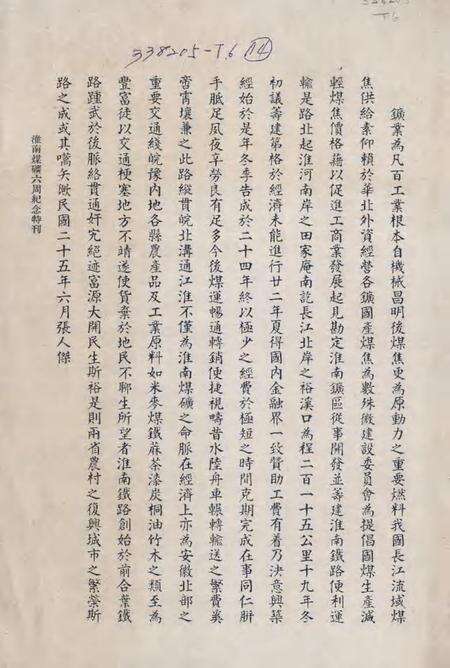 338205-T.6 14
鑛業為凡百工業根本自機械昌明後煤焦更為原動力之重要燃料我國長江流域煤
焦供給素仰賴於華北外資經營各鑛國產煤焦為數殊微建設委員會為提倡國煤生產減
輕煤焦價格藉以促進工商業發展起見勘定淮南鑛區從事開發並籌建淮南鐵路便利運
輸是路北起淮河南岸之田家庵南訖長江北岸之裕溪口為程二百一十五公里十九年冬
初議籌建第格於經濟未能進行廿二年夏得國內金融界一致贊助工費有着乃決意興築
經始於是年冬季告成於二十四年終以極少之經費於極短之時間克期完成在事同仁胼
手胝足夙夜辛勞良有足多今後煤運暢通轉銷便捷視疇昔水陸舟車輾轉輸送之繁費奚
啻霄壤兼之此路縱貫皖北溝通江淮不僅為淮南煤礦之命脈在經濟上亦為安徽北部之
重要交通綫皖豫內地各縣農產品及工業原料如米麥煤鐵麻茶漆炭桐油竹木之類至為
豐富徒以交通梗塞地方不靖遂使貨棄於地民不聊生所望者淮南鐵路創始於前合葉鐵
路踵武於後脈絡貫通奸宄絕迹富源大開民生斯裕是則兩省農村之復興城市之繁榮斯
路之成或其嚆矢歟民國二十五年六月張人傑
淮南煤礦六周紀念特刊